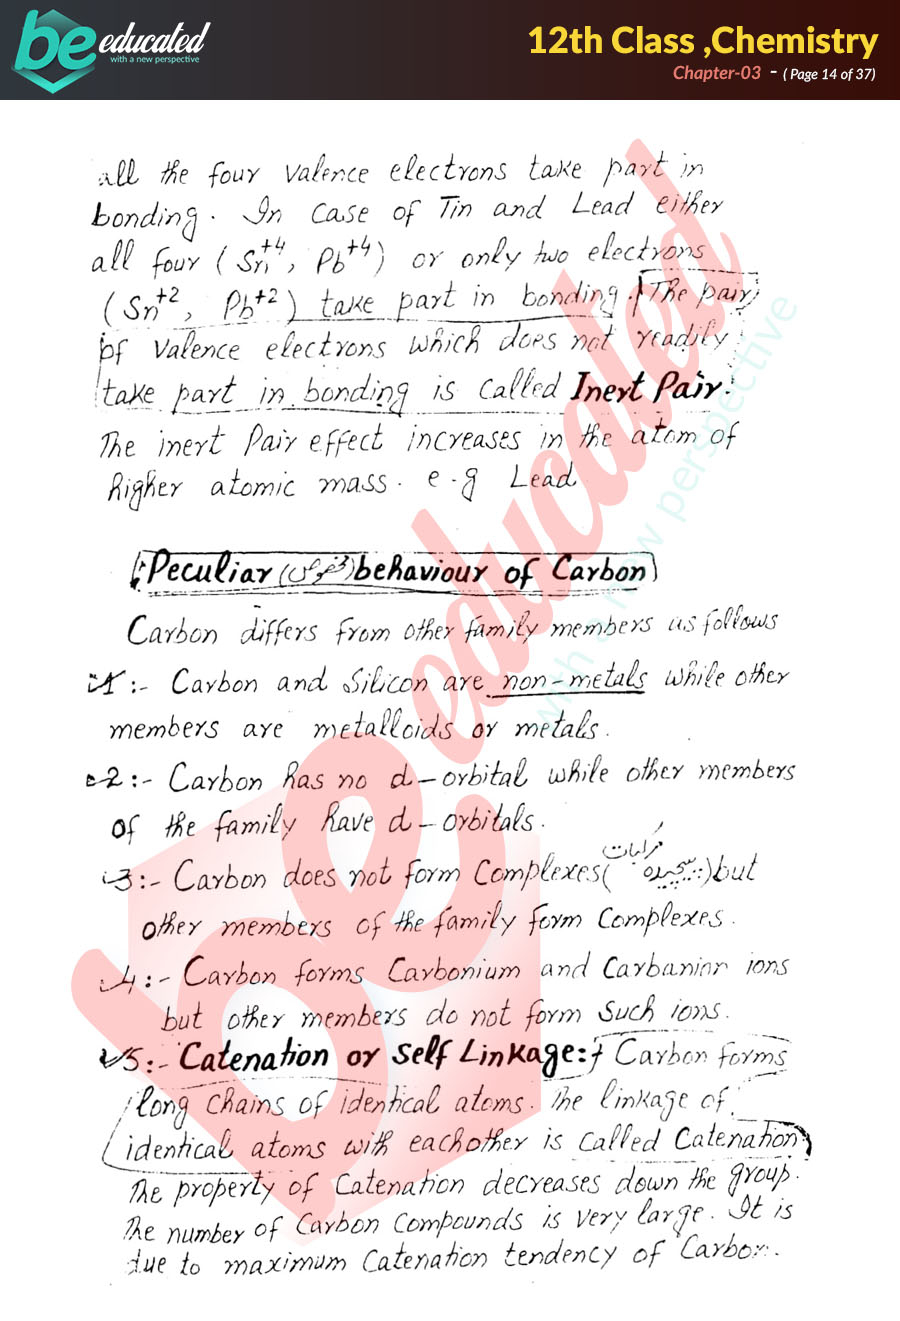 be educated
with a new perspective
12th Class ,Chemistry
Chapter-03 - ( Page 14 of 37)
all the four valence electrons take part in
bonding. In case of Tin and Lead either
all four ( Sn+4, Pb+4) or only two electrons
( Sn+2, Pb+2 ) take part in bonding. The pair
of valence electrons which does not readily
take part in bonding is called Inert Pair.
The inert Pair effect increases in the atom of
higher atomic mass. e.g Lead
Peculiar ( ) behaviour of Carbon
Carbon differs from other family members as follows
1:- Carbon and Silicon are non-metals while other
members are metalloids or metals.
2:- Carbon has no d-orbital while other members
of the family have d-orbitals.
3:- Carbon does not form Complexes( پیچیدہ مرکبات )but
other members of the family form Complexes.
4:- Carbon forms Carbonium and Carbanion ions
but other members do not form such ions.
5:- Catenation or Self Linkage:- Carbon forms
long chains of identical atoms. The linkage of
identical atoms with eachother is called Catenation
The property of Catenation decreases down the group.
The number of Carbon Compounds is very large. It is
due to maximum Catenation tendency of Carbon.
be educated
with a new perspective